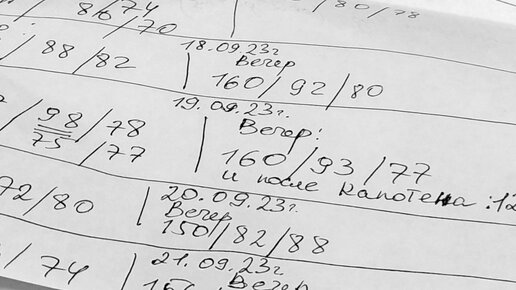 86/74
/70
/80/78
/88/82
18.09.23г
Вечер
160/92/80
/98/78
75/77
19.09.23г.
Вечер:
160/93/77
и после капотена:12
72/80
20.09.23г.
Вечер
150/82/88
/74
21.09.23г
Вечер